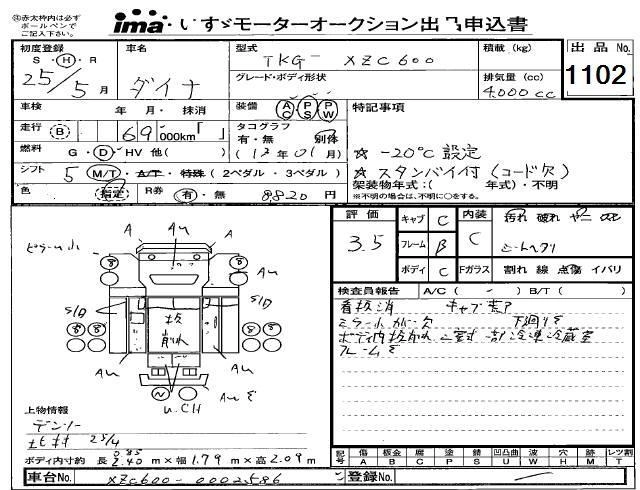 ㊟赤太枠内は必ず
ボールペンで
ご記入下さい。
ima いすゞモーターオークション出品申込書
初度登録
S・H・R
25/5月
車名
ダイナ
型式
TKG- XZC600
グレード・ボディ形状
積載(kg)
排気量(cc)
4000cc
出品No.
1102
車検 年 月・抹消
装備 AC PS PW
特記事項
走行 B 69 000km「 」
タコグラフ
有・無 別体
(12年01月)
☆ -20℃設定
☆ スタンバイ付(コード欠)
燃料 G・D・HV 他( )
シフト 5 M/T・A/T・特殊(2ペダル・3ペダル)
架装物年式:( 年式)・不明
※不明の場合は、不明に○をする。
色 指定 R券 有・無 8820円
評価 3.5
キャブ C
フレーム B
ボディ C
内装 C
Fガラス 割れ 線 点傷 イバリ
汚れ 破れ ヤニ
シートヘタリ
検査員報告 A/C( - ) B/T( )
看板消 キャブ荒ア
ミラー小カバー欠 下廻りS
ボディ内抜削れ 二室式 一部冷凍冷蔵室
フレームS
ピラー小 A AU A
8 8
AU
S/D 抜 削れ S/D
8 8 8 8
AU AU
N U,CH AU S
上物情報
デンソー
北村 25/4
ボディ内寸約 長 0.85 2.40 m×幅 1.79 m×高 2.09 m
記号 傷 A 板金 B 腐 C 塗 P 錆 S 凹凸曲 U 波 W 穴 H 跡 M レツ割 T
車台No. XZC600-0002586
登録No. -